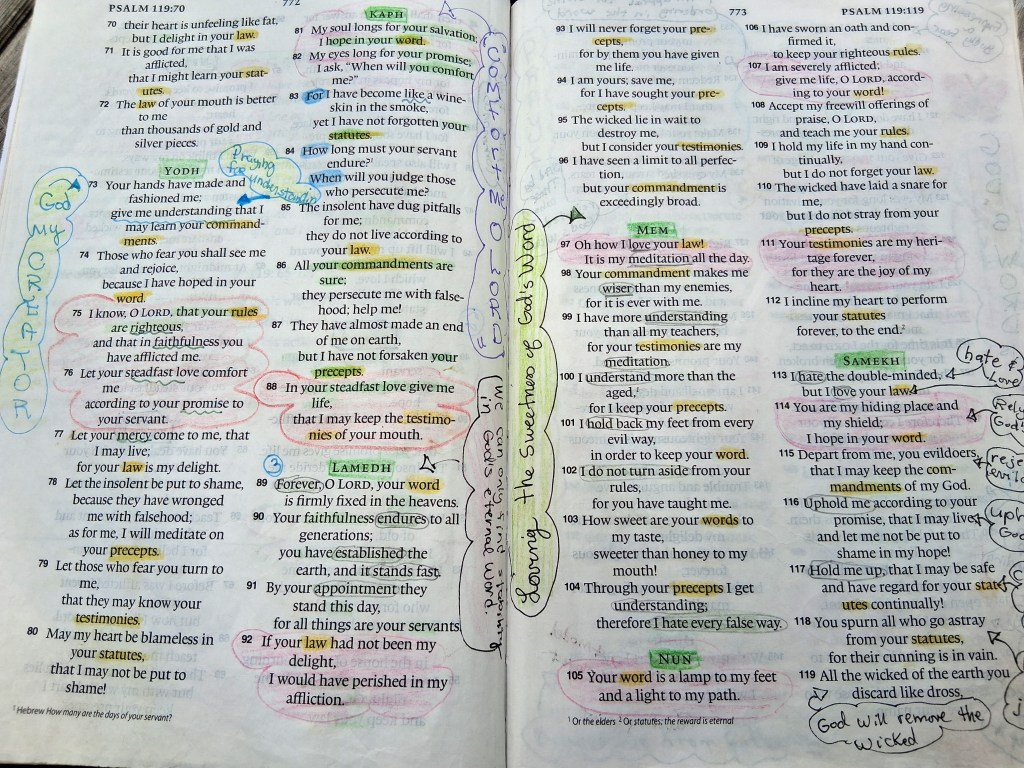 PSALM 119:70
772
70 their heart is unfeeling like fat,
but I delight in your law.
71 It is good for me that I was
afflicted,
that I might learn your stat-
utes.
72 The law of your mouth is better
to me
than thousands of gold and
silver pieces.
YODH
73 Your hands have made and
fashioned me;
give me understanding that I
may learn your command-
ments.
74 Those who fear you shall see me
and rejoice,
because I have hoped in your
word.
75 I know, O LORD, that your rules
are righteous,
and that in faithfulness you
have afflicted me.
76 Let your steadfast love comfort
me
according to your promise to
your servant.
77 Let your mercy come to me, that
I may live;
for your law is my delight.
78 Let the insolent be put to shame,
because they have wronged
me with falsehood;
as for me, I will meditate on
your precepts.
79 Let those who fear you turn to
me,
that they may know your
testimonies.
80 May my heart be blameless in
your statutes,
that I may not be put to
shame!
1 Hebrew How many are the days of your servant?
God
My
CREATOR
Praying
for understanding
KAPH
81 My soul longs for your salvation;
I hope in your word.
82 My eyes long for your promise;
I ask, "When will you comfort
me?"
83 For I have become like a wine-
skin in the smoke,
yet I have not forgotten your
statutes.
84 How long must your servant
endure?1
When will you judge those
who persecute me?
85 The insolent have dug pitfalls
for me;
they do not live according to
your law.
86 All your commandments are
sure;
they persecute me with false-
hood; help me!
87 They have almost made an end
of me on earth,
but I have not forsaken your
precepts.
88 In your steadfast love give me
life,
that I may keep the testimo-
nies of your mouth.
3
LAMEDH
89 Forever, O LORD, your word
is firmly fixed in the heavens.
90 Your faithfulness endures to all
generations;
you have established the
earth, and it stands fast.
91 By your appointment they
stand this day,
for all things are your servants.
92 If your law had not been my
delight,
I would have perished in my
affliction.
COMFORT ME O LORD
We can only find stability
in God's eternal Word.
773
PSALM 119:119
93 I will never forget your pre-
cepts,
for by them you have given
me life.
94 I am yours; save me,
for I have sought your pre-
cepts.
95 The wicked lie in wait to
destroy me,
but I consider your testimonies.
96 I have seen a limit to all perfec-
tion,
but your commandment is
exceedingly broad.
MEM
97 Oh how I love your law!
It is my meditation all the day.
98 Your commandment makes me
wiser than my enemies,
for it is ever with me.
99 I have more understanding
than all my teachers,
for your testimonies are my
meditation.
100 I understand more than the
aged,1
for I keep your precepts.
101 I hold back my feet from every
evil way,
in order to keep your word.
102 I do not turn aside from your
rules,
for you have taught me.
103 How sweet are your words to
my taste,
sweeter than honey to my
mouth!
104 Through your precepts I get
understanding;
therefore I hate every false way.
NUN
105 Your word is a lamp to my feet
and a light to my path.
Loving the Sweetness of God's Word
106 I have sworn an oath and con-
firmed it,
to keep your righteous rules.
107 I am severely afflicted;
give me life, O LORD, accord-
ing to your word!
108 Accept my freewill offerings of
praise, O LORD,
and teach me your rules.
109 I hold my life in my hand con-
tinually,
but I do not forget your law.
110 The wicked have laid a snare for
me,
but I do not stray from your
precepts.
111 Your testimonies are my heri-
tage forever,
for they are the joy of my
heart.
112 I incline my heart to perform
your statutes
forever, to the end.2
SAMEKH
113 I hate the double-minded,
but I love your law.
114 You are my hiding place and
my shield;
I hope in your word.
115 Depart from me, you evildoers,
that I may keep the com-
mandments of my God.
116 Uphold me according to your
promise, that I may live,
and let me not be put to
shame in my hope!
117 Hold me up, that I may be safe
and have regard for your stat-
utes continually!
118 You spurn all who go astray
from your statutes,
for their cunning is in vain.
119 All the wicked of the earth you
discard like dross,
1 Or the elders 2 Or statutes; the reward is eternal
hate &
Love
God will remove the
wicked